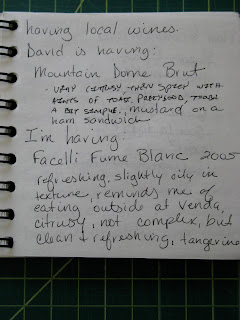 having local wines.
David is having:
Mountain Dome Brut
- VERY CITRUSY, THEN SPICY WITH
HINTS OF TOAST. PRETTY GOOD, THOUGH
A BIT SIMPLE. Mustard on a
ham sandwich
I'm having:
Facelli Fumé Blanc 2005
refreshing, slightly oily in
texture, reminds me of
eating outside at Venda,
citrusy, not complex, but
clean & refreshing, tangerine